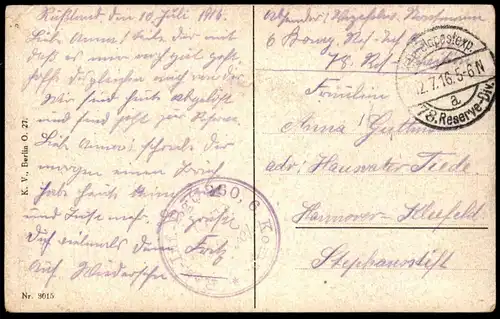 Rußland den 10 Juli 1916.
Liebe Anna! Teile dir mit
daß es mir noch gut geht
hoffe desgleichen auch von dir
Wir sind heute abgelöst
und sind jetzt zur Reserve
Liebe Anna! schreibe dir
morgen einen Brief
habe heute keine
und Lust mehr. Es grüßt
Dich vielmals dein Fritz
Auf Wiedersehn
Absender:
6 Komp. Res. Inf. Reg.
78. Res.
Fräulein
Anna
adr: Hausvater Tiede
Hannover-Kleefeld
Stephansstift
Feldpostexp.
12.7.16. 5-6 N
a
78. Reserve-Div.
260, 6. Ko
K. V., Berlin O. 27.
Nr. 3015